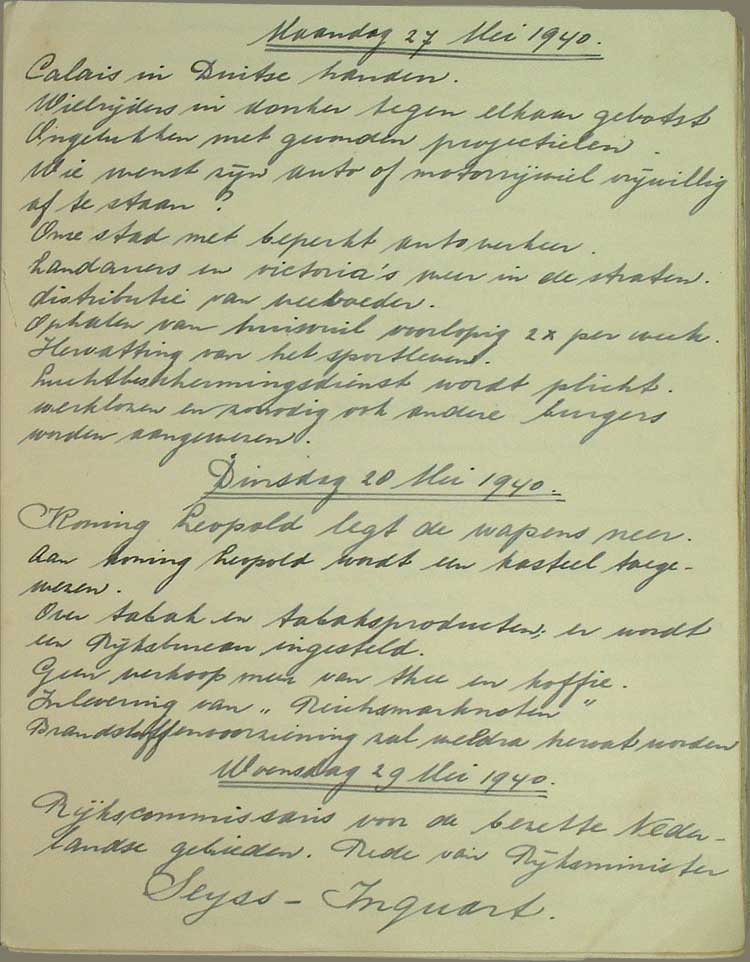 Maandag 27 Mei 1940.
Calais in Duitse handen.
Wielrijders in donker tegen elkaar gebotst
Ongelukken met gevonden projectielen.
Wie wenst zijn auto of motorrijwiel vrijwillig
af te staan?
Onze stad met beperkt autoverkeer.
Landauers en victoria's weer in de straten.
distributie van veevoeder.
Ophalen van huisvuil voorlopig 2x per week.
Hervatting van het sportleven.
Luchtbeschermingsdienst wordt plicht.
werklozen en zonodig ook andere burgers
worden aangewezen.
Dinsdag 28 Mei 1940.
Koning Leopold legt de wapens neer.
Aan koning Leopold wordt een kasteel toege-
wezen.
Over tabak en tabaksproducten, er wordt
een Rijksbureau ingesteld.
Geen verkoop meer van thee en koffie.
Inlevering van „Reichsmarknoten"
Brandstoffenvoorziening zal weldra hervat worden
Woensdag 29 Mei 1940.
Rijkscommissaris voor de bezette Neder-
landse gebieden. Rede van Rijksminister
Seyss-Inquart.